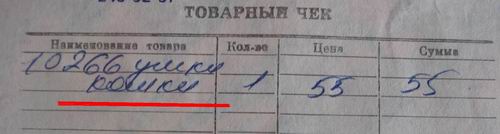 ТОВАРНЫЙ ЧЕК
Наименование товара Кол-во Цена Сумма
10266 ушки
кошки 1 55 55